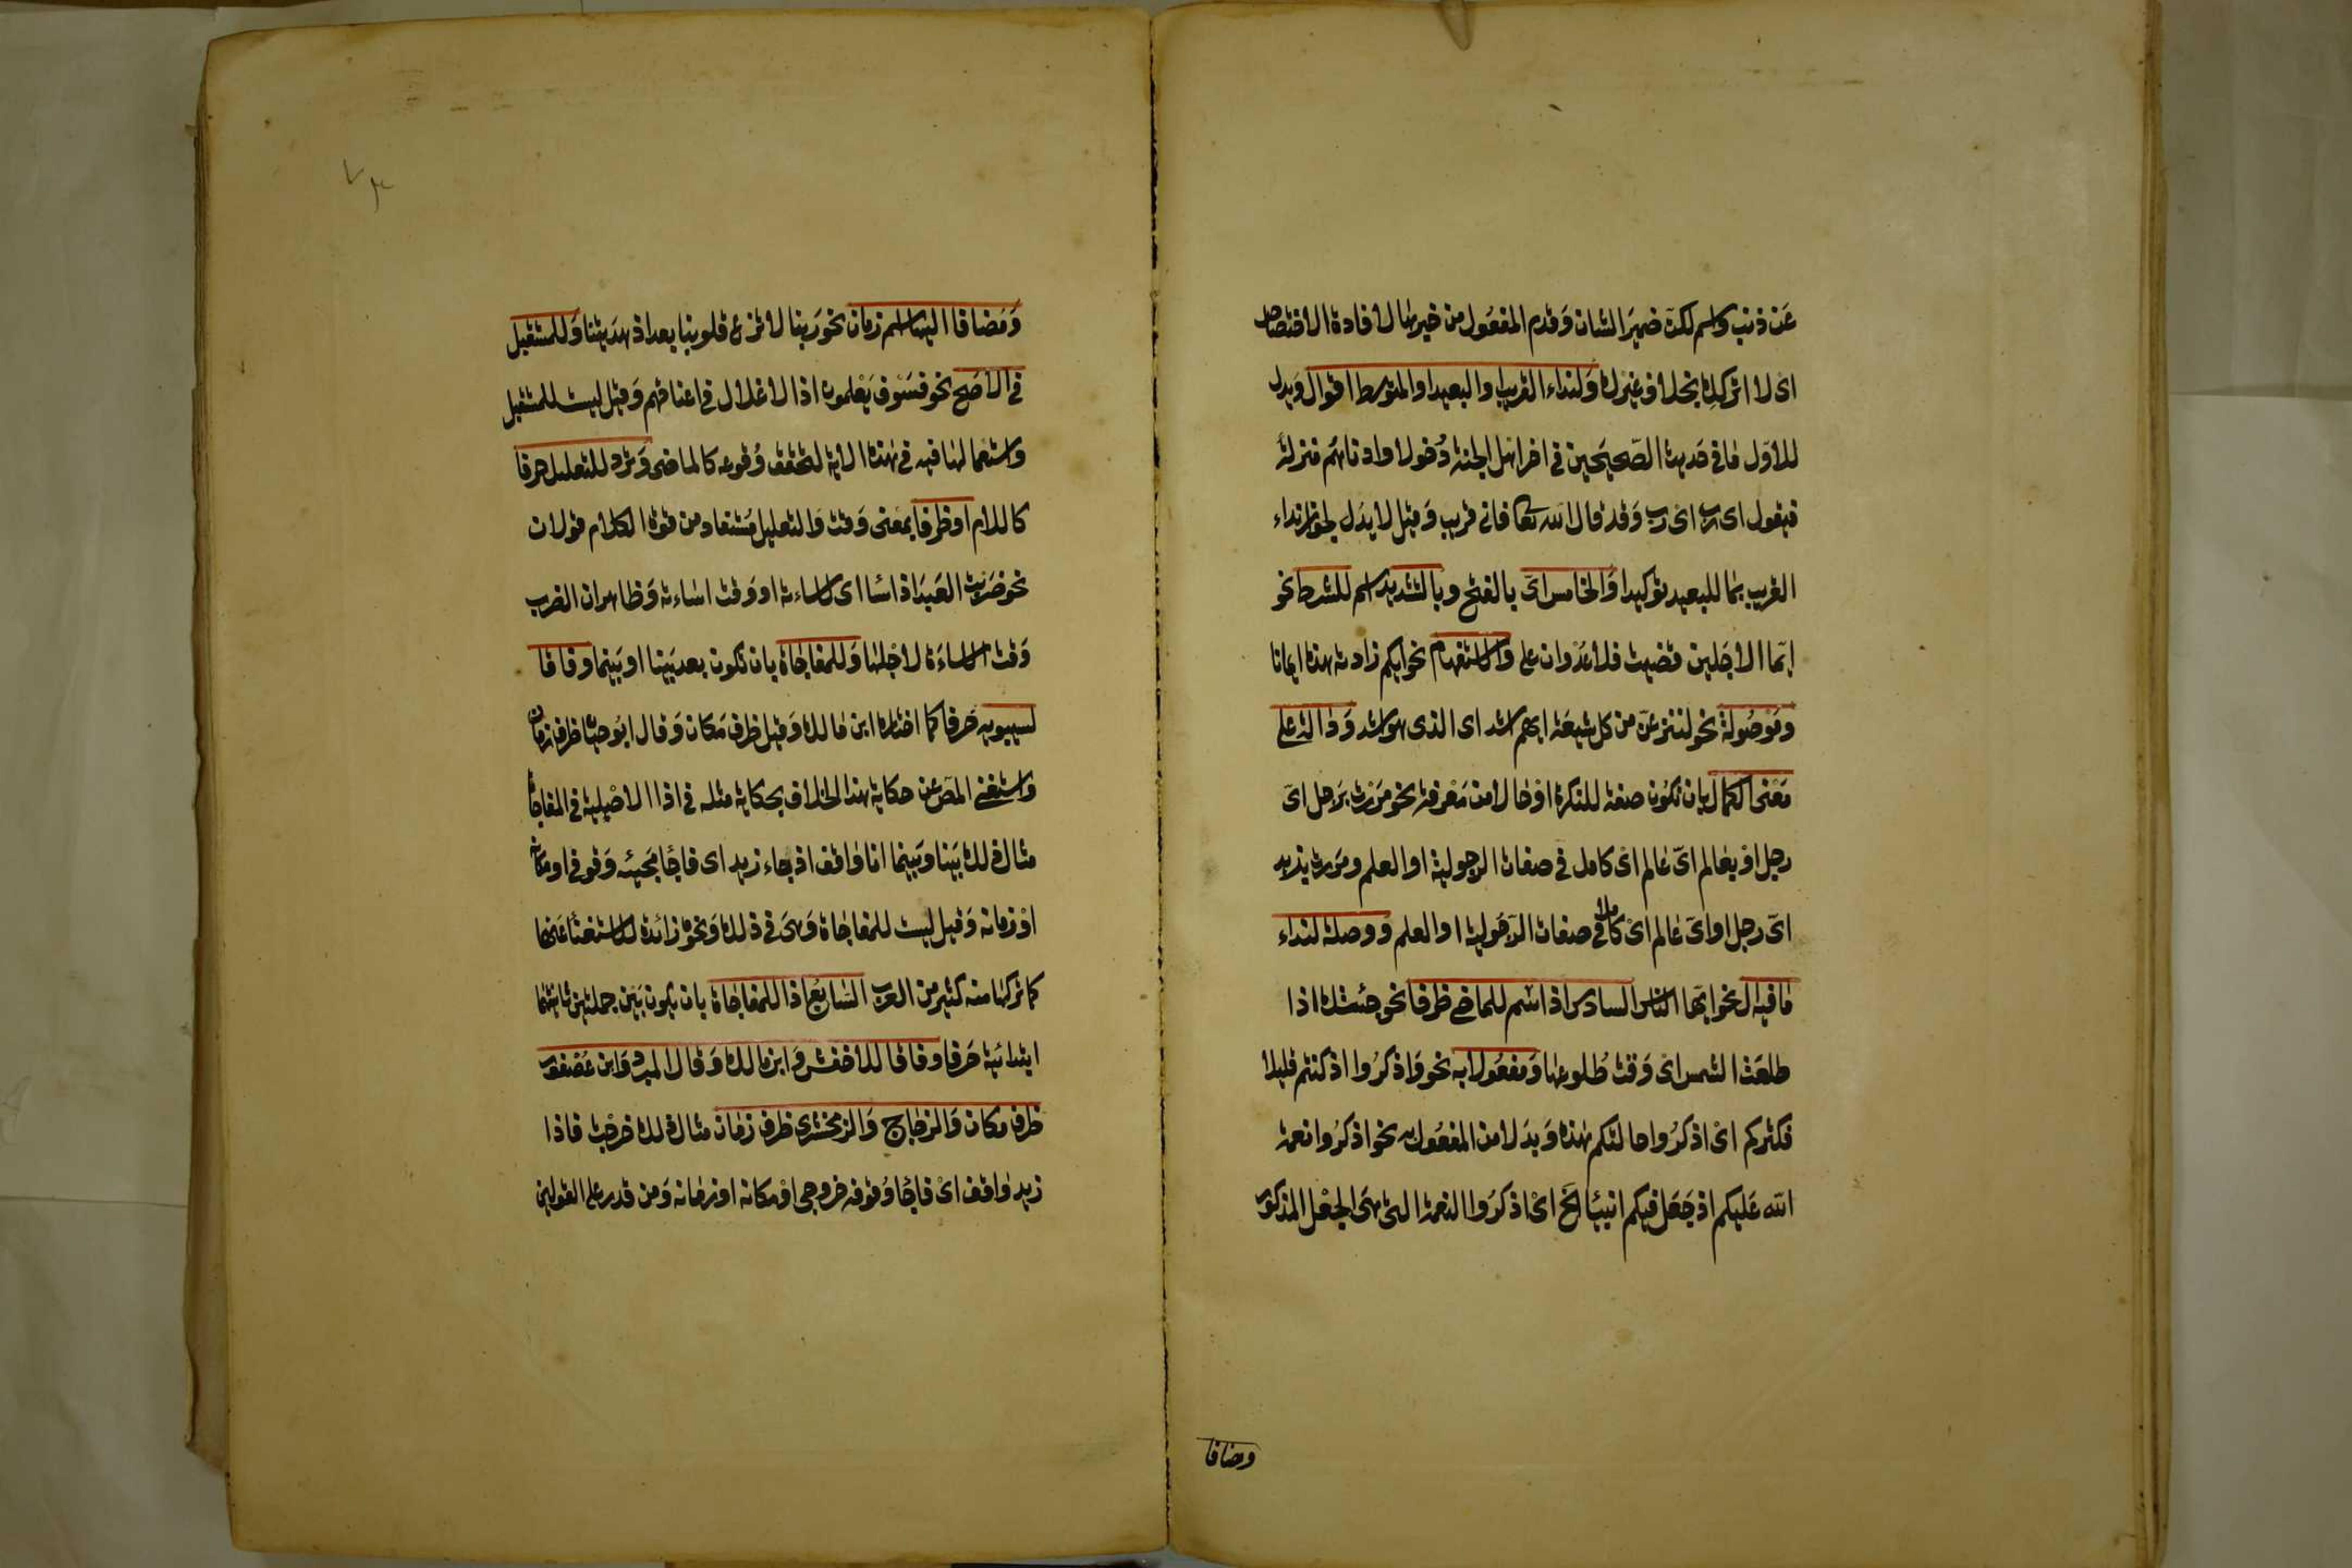 عَن ذنب واسم لكنّ ضميرَ الشان وَقدم المفعُول من خبرها لافادة الاختصاص
اى لا اتركك بخلاف غيرك وَلنداء القريب او البعيد او المتوسط اقوال وَيدل
للاوّل مَا فى حَديث الصّحيحين فى اخر اهل الجنة دُخولا وادناهم منزلة
فيقول اى رب اى رب وَقد قال الله تعا فانى قريب وَقيل لا يدل لجواز نداء
القريب بما للبعيد توكيدا وَالخامس اىّ بالفتح وبالتشديد اسم للشرط نحو
ايّما الاجَلين قضيت فلا عُدْوان على وَالاستفهام نحو ايكم زادته هذه ايمانا
ومَوْصُولة نحو لننزعنّ من كل شيعَة ايهم اشد اى الذى هو اشد وَدَالة على
مَعْنى الكمال بان تكوُن صفة للنكرة اوْ حَالا من مَعْرفة نحو مَرَرْت برَجل اىّ
رجل اوْ بعَالم اىّ عَالم اىْ كامل فى صفات الرجولية او العلم ومرَرت بزيد
اىّ رجل او اىّ عَالم اىْ كاملا فى صفات الرّجُولية او العلم ووصلة لنداء
مَا فيه ال نحو ايّها الناس السادس اذ اسْم للماضى ظرفا نحو جئتك اذا
طلعَت الشمس اى وَقت طُلوعهَا وَمفعُولا به نحو وَاذكرُوا اذ كنتم قليلا
فكثركم اىْ اذكرُوا حالتكم هذه وَبدَلا من المفعُول به نحو اذكرُوا نعمة
الله عَليكم اذ جَعَل فيكم انبيَا الخ اىْ اذكرُوا النعمة التى هىَ الجعْل المذكور
ومضافا
وَمَضافا اليهَا اسم زمان نحو رَبنا لا تزغ قلوبنا بعد اذ هدَيتنا وَللمستقبل
فى الاصَح نحو فسَوْف يَعْلمون اذ الاغلال فى اعناقهم وَقيل ليست للمستقبل
واستعمالهَا فيه فى هٰذه الاية لتحقق وُقوعه كالماضى وَترد للتعليل حرفا
كاللام او ظرفا بمعَنى وَقت وَالتعليل مُستفاد من قوة الكلام قولان
نحو ضَرَبت العَبدَ اذ اسَا اى لاساءته او وَقت اسَاءته وَظاهر ان الضرب
وَقت الاساءَة لاجلهَا وَللمفاجَاة بان تكون بعد بَينا او بَينما وفاقا
لسيبويه حَرفا كما اختاره ابن مَالك وَقيل ظرف مَكان وَقال ابُو حيان ظرف زمان
واستغنى المص عن حكاية هٰذا الخلاف بحكاية مثله فى اذا الاصْلية فى المفاجاة
مثال ذلك بَينا وبَينما انا وَاقف اذ جاء زيد اى فاجَأ مَجيئه وَقوفى او مكانه
اوْ زمانه وَقيل ليست للمفاجَاة وَهىَ فى ذلك وَنحوْه زائدة للاستغنَا عَنها
كما تركهَا منه كثير من العرَب السَابع اذا للمفاجَاة بان تكون بَيْن جملتين ثانيتهما
ابتدائية حَرفا وفاقا للاخفش وَابن مالك وَقال المبرد وَابن عُصْفور
ظرف مكان وَالزجَاج وَالزمخشرى ظرف زمَان مثال ذلك خرجْت فاذا
زيد وَاقف اىْ فاجَأ وُقوفه خروجى اوْ مكانه او زمَانه وَمن قدر على القولين